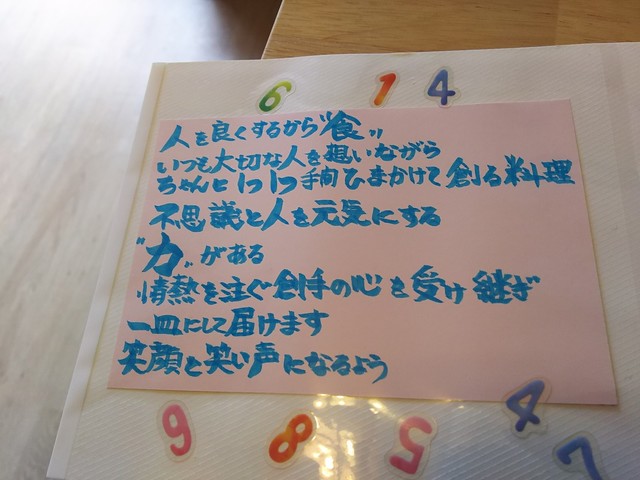 6 14
人を良くするから"食"
いつも大切な人を想いながら
ちゃんと1つ1つ手間ひまかけて創る料理
不思議と人を元気にする
"力"がある
情熱を注ぐ創手の心を受け継ぎ
一皿にして届けます
笑顔と笑い声になるよう
6 8 5 4 7